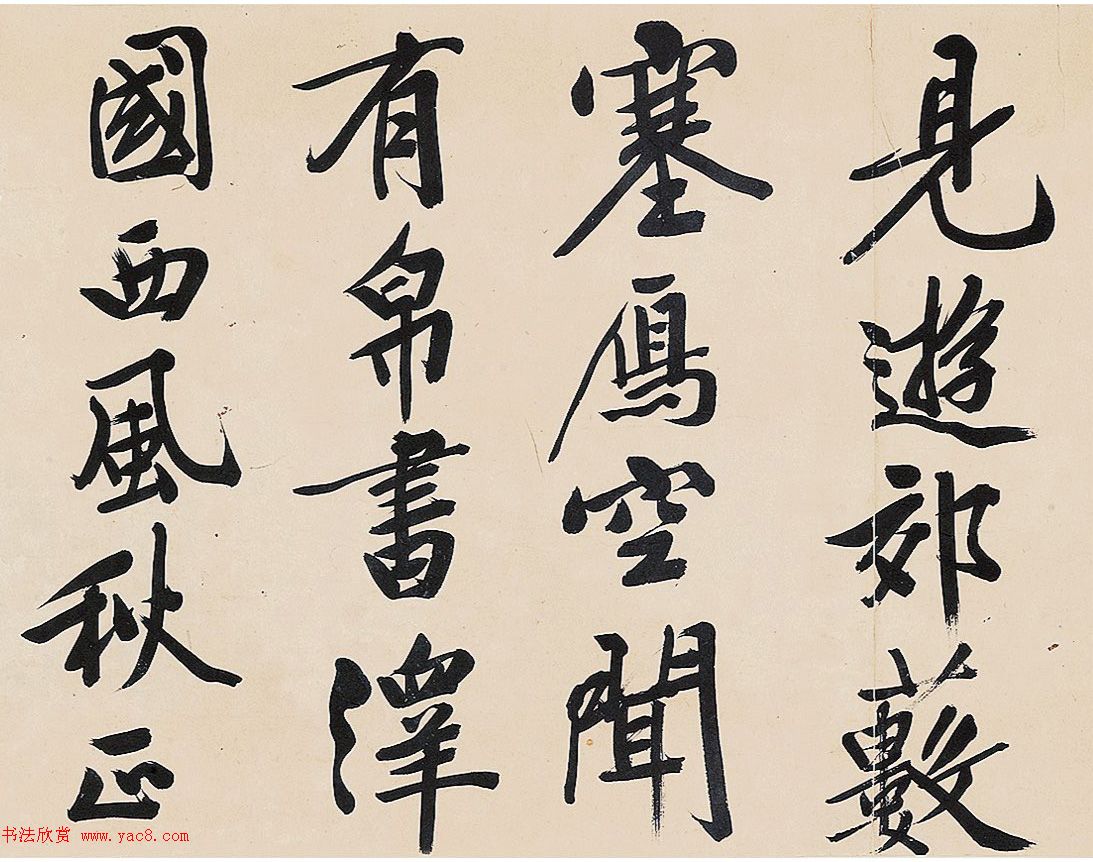 見遊郊藪
塞鴈空聞
有帛書澤
國西風秋正
书法欣赏 www.yac8.com